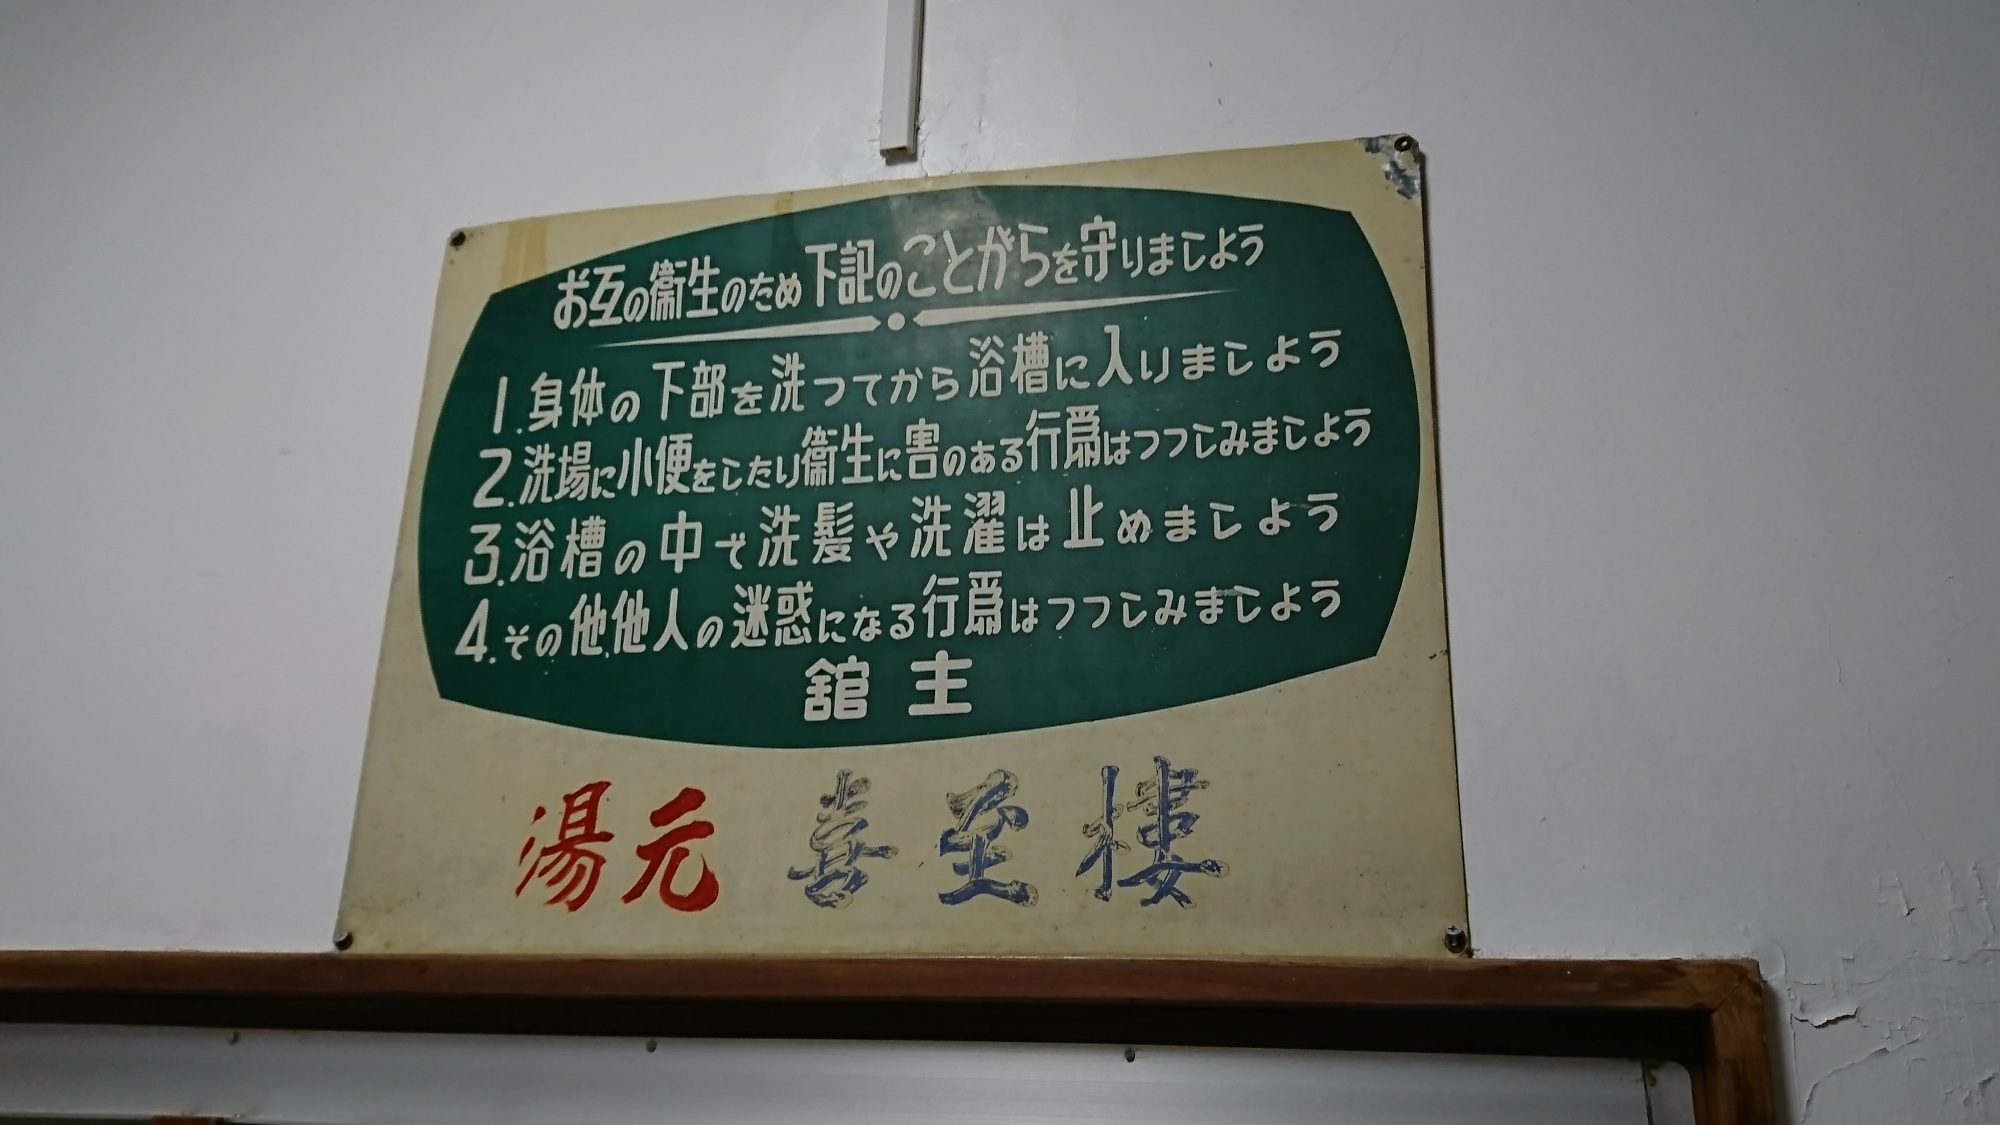 お互の衞生のため下記のことがらを守りましよう
1.身体の下部を洗つてから浴槽に入りましよう
2.洗場に小便をしたり衞生に害のある行爲はつつしみましよう
3.浴槽の中で洗髪や洗濯は止めましよう
4.その他、他人の迷惑になる行爲はつつしみましよう
舘主
湯元 喜至樓